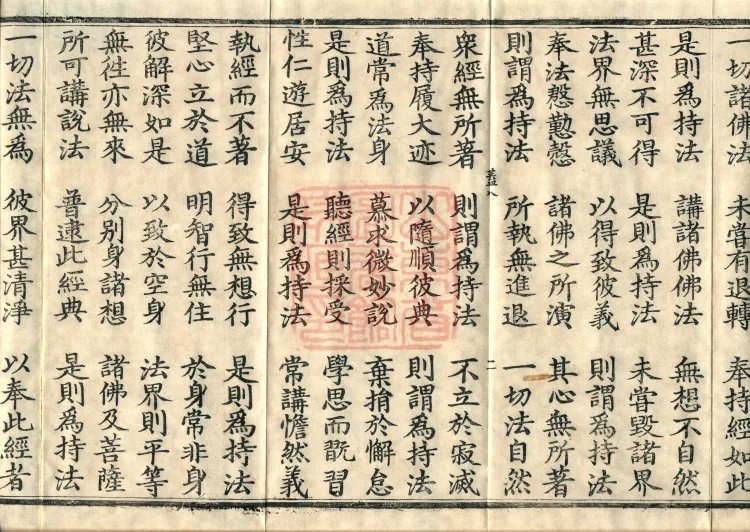 一切諸佛法　未嘗有退轉　奉持經如此
是則爲持法　講諸佛佛法　無想不自然
甚深不可得　是則爲持法　未嘗毀諸界
法界無思議　以得致彼義　則謂爲持法
奉法慇懃慤　諸佛之所演　其心無所著
則謂爲持法　所執無進退　一切法自然
蓋八　二
衆經無所著　則謂爲持法　不立於寂滅
奉持履大迹　以隨順彼典　則謂爲持法
道常爲法身　慕求微妙説　棄捐於懈怠
是則爲持法　聽經則採受　學思而翫習
性仁遊居安　是則爲持法　常講憺然義
執經而不著　得致無想行　是則爲持法
堅心立於道　明智行無住　於身常非身
彼解深如是　以致於空身　法界則平等
無徃亦無來　分别身諸想　諸佛及菩薩
所可講説法　普逮此經典　是則爲持法
一切法無爲　彼界甚清淨　以奉此經者